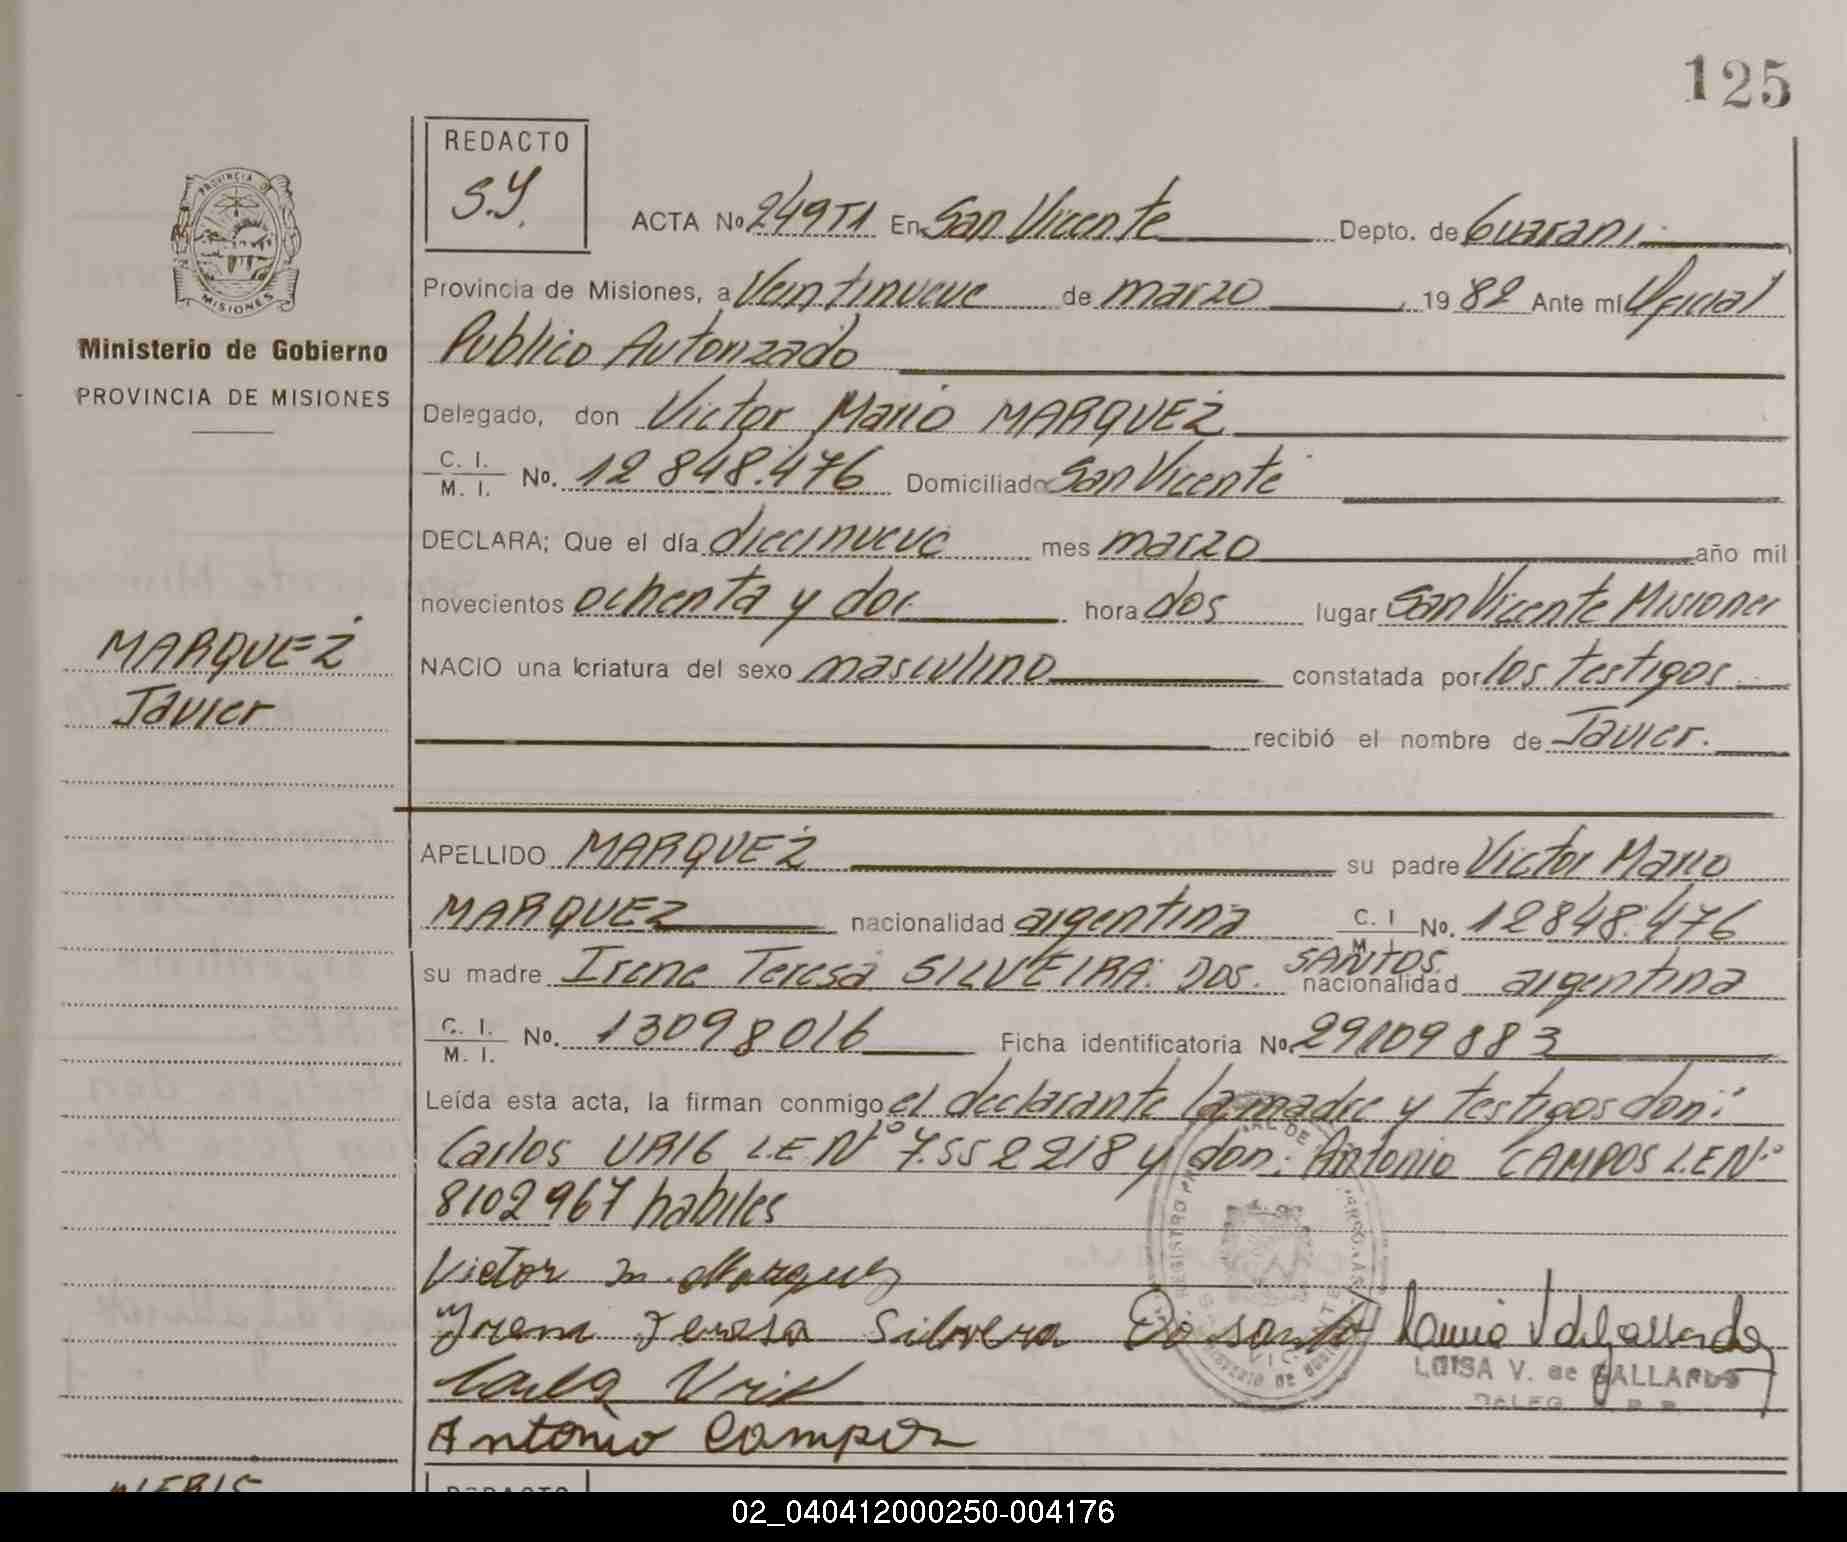 125
REDACTO
S.Y.
PROVINCIA DE
MISIONES
Ministerio de Gobierno
PROVINCIA DE MISIONES
MARQUEZ
Javier
ACTA No 249T1 En San Vicente Depto. de Guarani
Provincia de Misiones, a Veintinueve de marzo 1982 Ante mí Oficial
Publico Autorizado
Delegado, don Victor Mario MARQUEZ
C. I. / M. I. No. 12848.476 Domiciliado San Vicente
DECLARA; Que el día diecinueve mes marzo año mil
novecientos ochenta y dos hora dos lugar San Vicente Misiones
NACIO una criatura del sexo masculino constatada por los testigos
recibió el nombre de Javier.
APELLIDO MARQUEZ su padre Victor Mario
MARQUEZ nacionalidad argentina C. I / M. I. No. 12848.476
su madre Irene Teresa SILVEIRA DOS. SANTOS. nacionalidad argentina
C. I. / M. I. No. 13098016 Ficha identificatoria No. 29109883
Leída esta acta, la firman conmigo el declarante la madre y testigos don:
Carlos URIG L.E.Nº 7.552218 y don: Antonio CAMPOS L.E.Nº
8102967 habiles
Victor M. Marquez
Irena Teresa Silvera Do santo
Antonio Campos
LUISA V. de GALLARDO
REDACTO
02_040412000250-004176